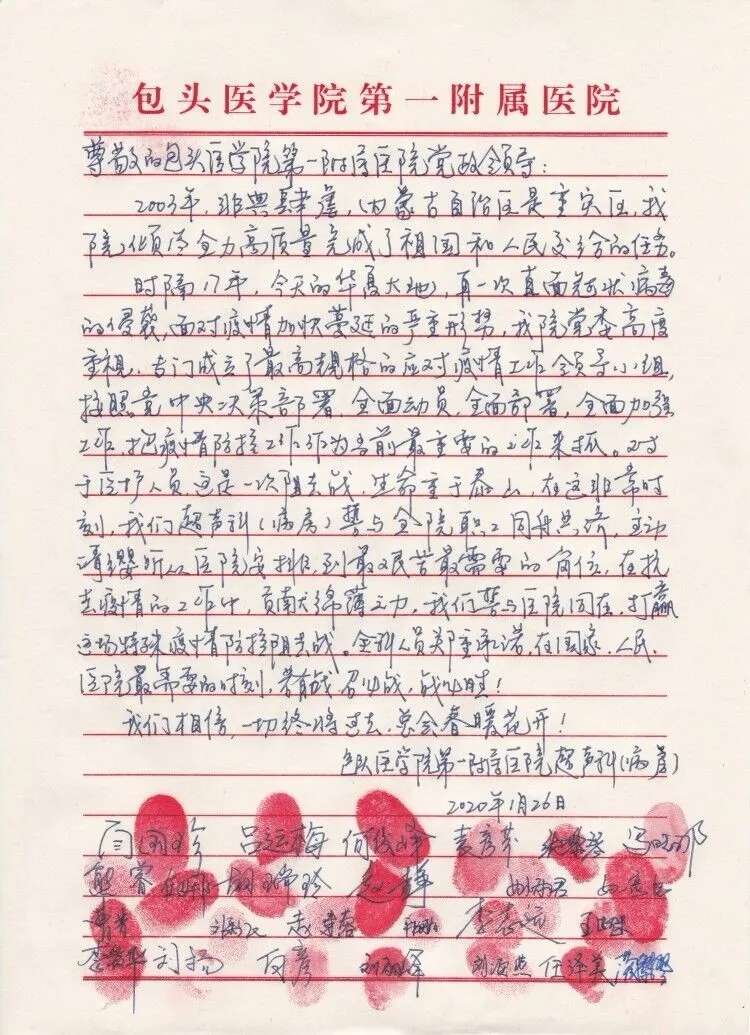 包头医学院第一附属医院
尊敬的包头医学院第一附属医院党政领导：
2003年，非典肆虐，内蒙古自治区是重灾区，我
院倾尽全力高质量完成了祖国和人民交给的任务。
时隔17年，今天的华夏大地，再一次直面冠状病毒
的侵袭，面对疫情加快蔓延的严重形势，我院党委高度
重视，专门成立了最高规格的应对疫情工作领导小组，
按照党中央决策部署，全面动员，全面部署，全面加强
工作，把疫情防控工作作为当前最重要的工作来抓。对
于医护人员，这是一次阻击战，生命重于泰山，在这非常时
刻，我们超声科（病房）誓与全院职工同舟共济，主动
请缨听从医院安排，到最艰苦最需要的岗位，在抗
击疫情的工作中，贡献绵薄之力，我们誓与医院同在，打赢
这场特殊疫情防控阻击战。全科人员郑重承诺，在国家、人民、
医院最需要的时刻，若有战，召必战，战必胜！
我们相信，一切终将过去，总会春暖花开！
包头医学院第一附属医院超声科（病房）
2020年1月26日
闫国珍 吕运梅 何俊峰
赵静
李志远
刘扬 向彦 刘海燕 任泽英